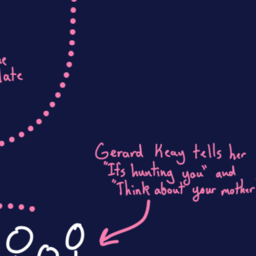 late
Gerard Keay tells her
"It's hunting you" and
"Think about your mother